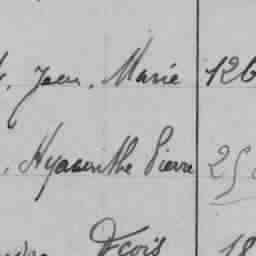 Jean, Marie 126
Hyacinthe Pierre 25
Fcois 18